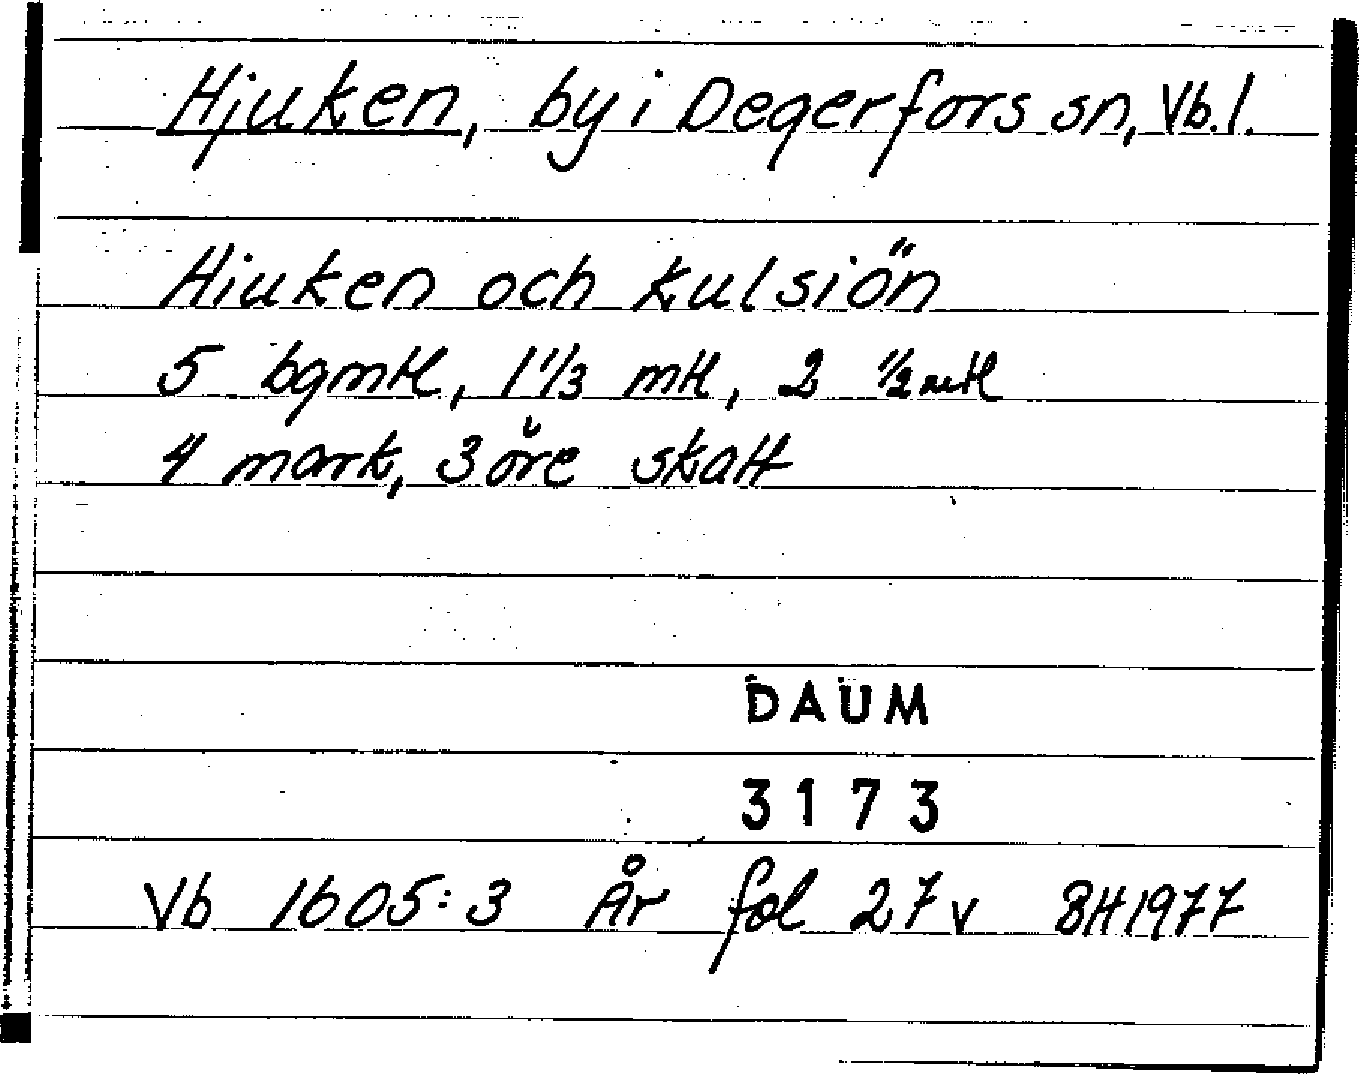 Hjuken, by i Degerfors sn, Vb. l.
Hiuken och kulsiön
5 bgmtl, 1 1/3 mtl, 2 1/2 mtl
4 mark, 3 öre skatt
DAUM
3173
Vb 1605:3 År fol 27 v BH 1977